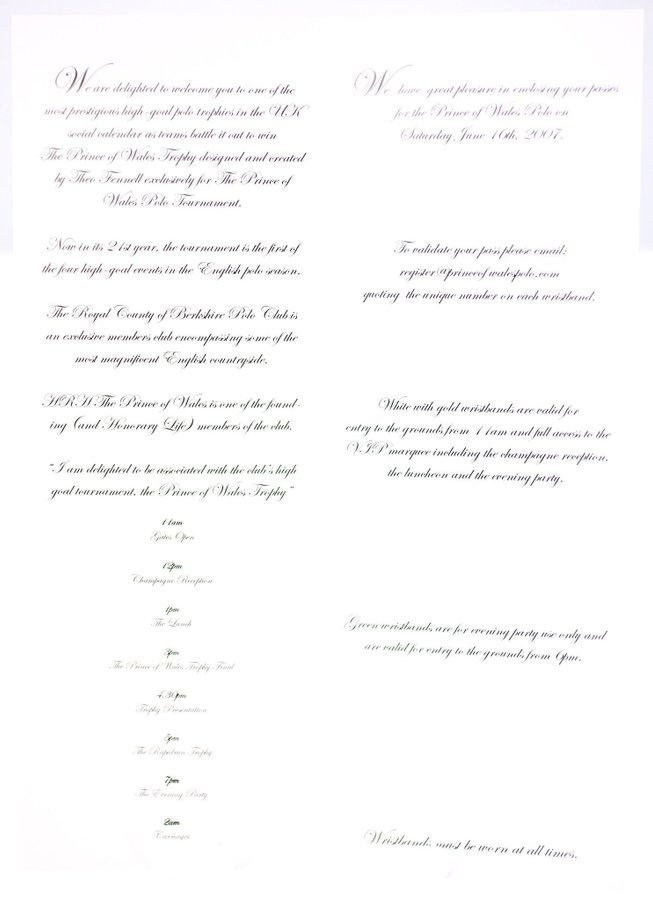 We are delighted to welcome you to one of the
most prestigious high-goal polo trophies in the UK
social calendar as teams battle it out to win
The Prince of Wales Trophy designed and created
by Theo Fennell exclusively for The Prince of
Wales Polo Tournament.
Now in its 21st year, the tournament is the first of
the four high-goal events in the English polo season.
The Royal County of Berkshire Polo Club is
an exclusive members club encompassing some of the
most magnificent English countryside.
HRH The Prince of Wales is one of the found-
ing (and Honorary Life) members of the club.
"I am delighted to be associated with the club's high
goal tournament, the Prince of Wales Trophy"
11am
Gates Open
12pm
Champagne Reception
1pm
The Lunch
3pm
The Prince of Wales Trophy Final
4.30pm
Trophy Presentation
5pm
The Rapidran Trophy
7pm
The Evening Party
2am
Carriages
We have great pleasure in enclosing your passes
for the Prince of Wales Polo on
Saturday June 16th, 2007.
To validate your pass please email:
register@princeofwalespolo.com
quoting the unique number on each wristband.
White with gold wristbands are valid for
entry to the grounds from 11am and full access to the
VIP marquee including the champagne reception,
the luncheon and the evening party.
Green wristbands are for evening party use only and
are valid for entry to the grounds from 6pm.
Wristbands must be worn at all times.